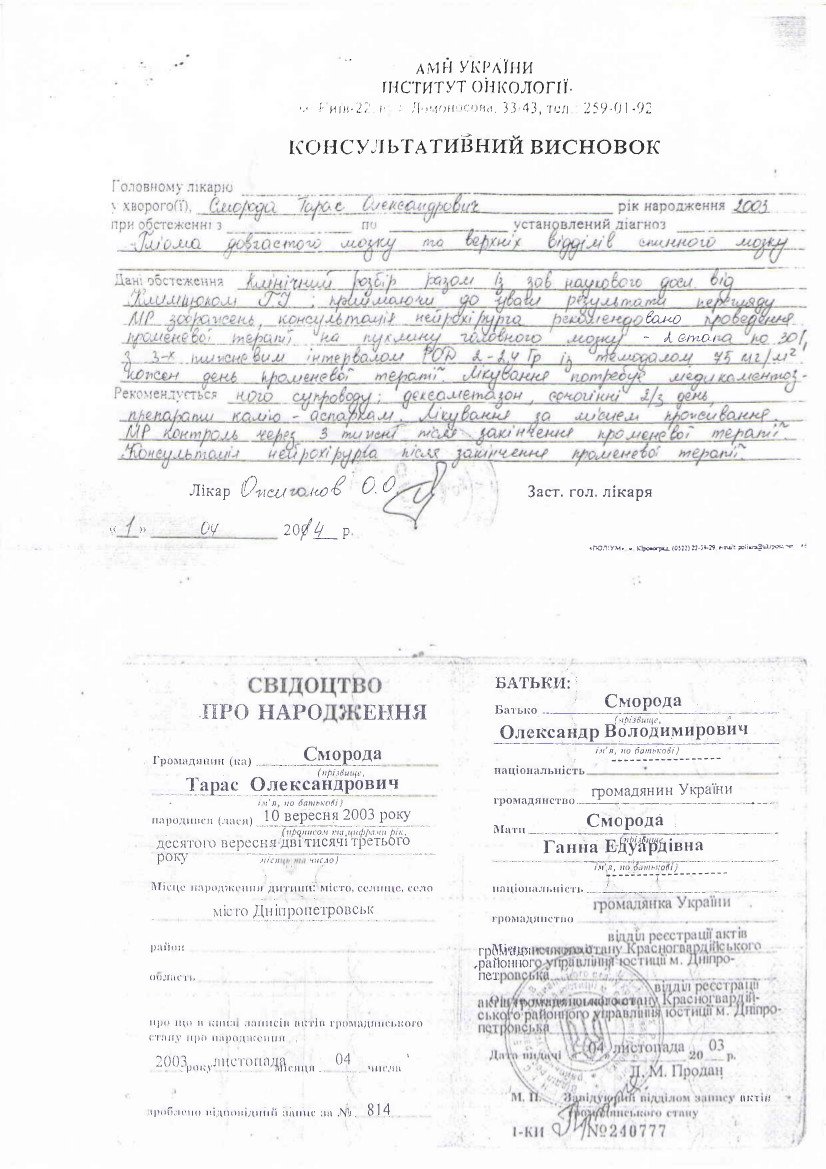 АМН УКРАЇНИ
ІНСТИТУТ ОНКОЛОГІЇ
Київ-22, Ломоносова, 33-43, тел.: 259-01-92
КОНСУЛЬТАТИВНИЙ ВИСНОВОК
Головному лікарю
у хворого(ї), Сморода Тарас Олександрович рік народження 2003
при обстеженні з по установлений діагноз
Гліома довгастого мозку та верхніх відділів спинного мозку
Дані обстеження Клінічний розбір разом із зав наукового від
Климнюком : приймаючи до уваги результати перегляду
МР зображень, консультація нейрохірурга рекомендовано проведення
променевої терапії на пухлину головного мозку - 2 етапа по 30 Г,
з 3-х тижневим інтервалом РОД 2-2,4 Гр із темодалом 75 мг/м²,
кожен день променевої терапії. Лікування потребує медикаментоз-
Рекомендується ного супроводу: дексаметазон, сечогінні 2/3 день,
препарати калію - аспаркам. Лікування за місцем проживання.
МР контроль через 3 тижні після закінчення променевої терапії.
Консультація нейрохірурга після закінчення променевої терапії.
Лікар О.О. Заст. гол. лікаря
«1» 04 2014 р.
«ПОЛІУМ», м. Кіровоград, (0522) 22-54-29
СВІДОЦТВО
ПРО НАРОДЖЕННЯ
Громадянин (ка) Сморода
(прізвище,
Тарас Олександрович
ім'я, по батькові)
народився (лася) 10 вересня 2003 року
(прописом та цифрами рік,
десятого вересня дві тисячі третього
року місяць та число)
Місце народження дитини: місто, селище, село
місто Дніпропетровськ
район
область
про що в книзі записів актів громадянського
стану про народження
2003 року листопада місяця 04 числа
зроблено відповідний запис за № 814
БАТЬКИ:
Батько Сморода
(прізвище,
Олександр Володимирович
ім'я, по батькові)
національність
громадянство громадянин України
Мати Сморода
(прізвище
Ганна Едуардівна
ім'я, по батькові)
національність
громадянство громадянка України
відділ реєстрації актів
громадянського стану Красногвардійського
районного управління юстиції м. Дніпро-
петровська
відділ реєстрації
актів громадянського стану Красногвардій-
ського районного управління юстиції м. Дніпро-
петровська
Дата видачі « 04 » листопада 2003 р.
Л. М. Продан
М. П. Завідуючий відділом запису актів
громадянського стану
І-КИ №240777